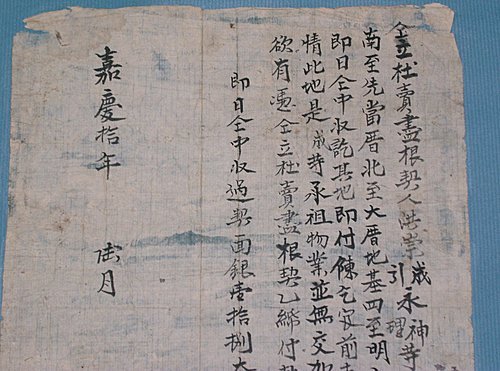 仝立杜賣盡根契人洪崇成引永理神等
南至先當厝北至大厝地基四至明
即日仝中收訖其地即付陳乞官前
情此地是成等承祖物業並無交加
欲有憑仝立杜賣盡根契乙紙付
即日仝中收過契面銀壹拾捌大
嘉慶拾年 月